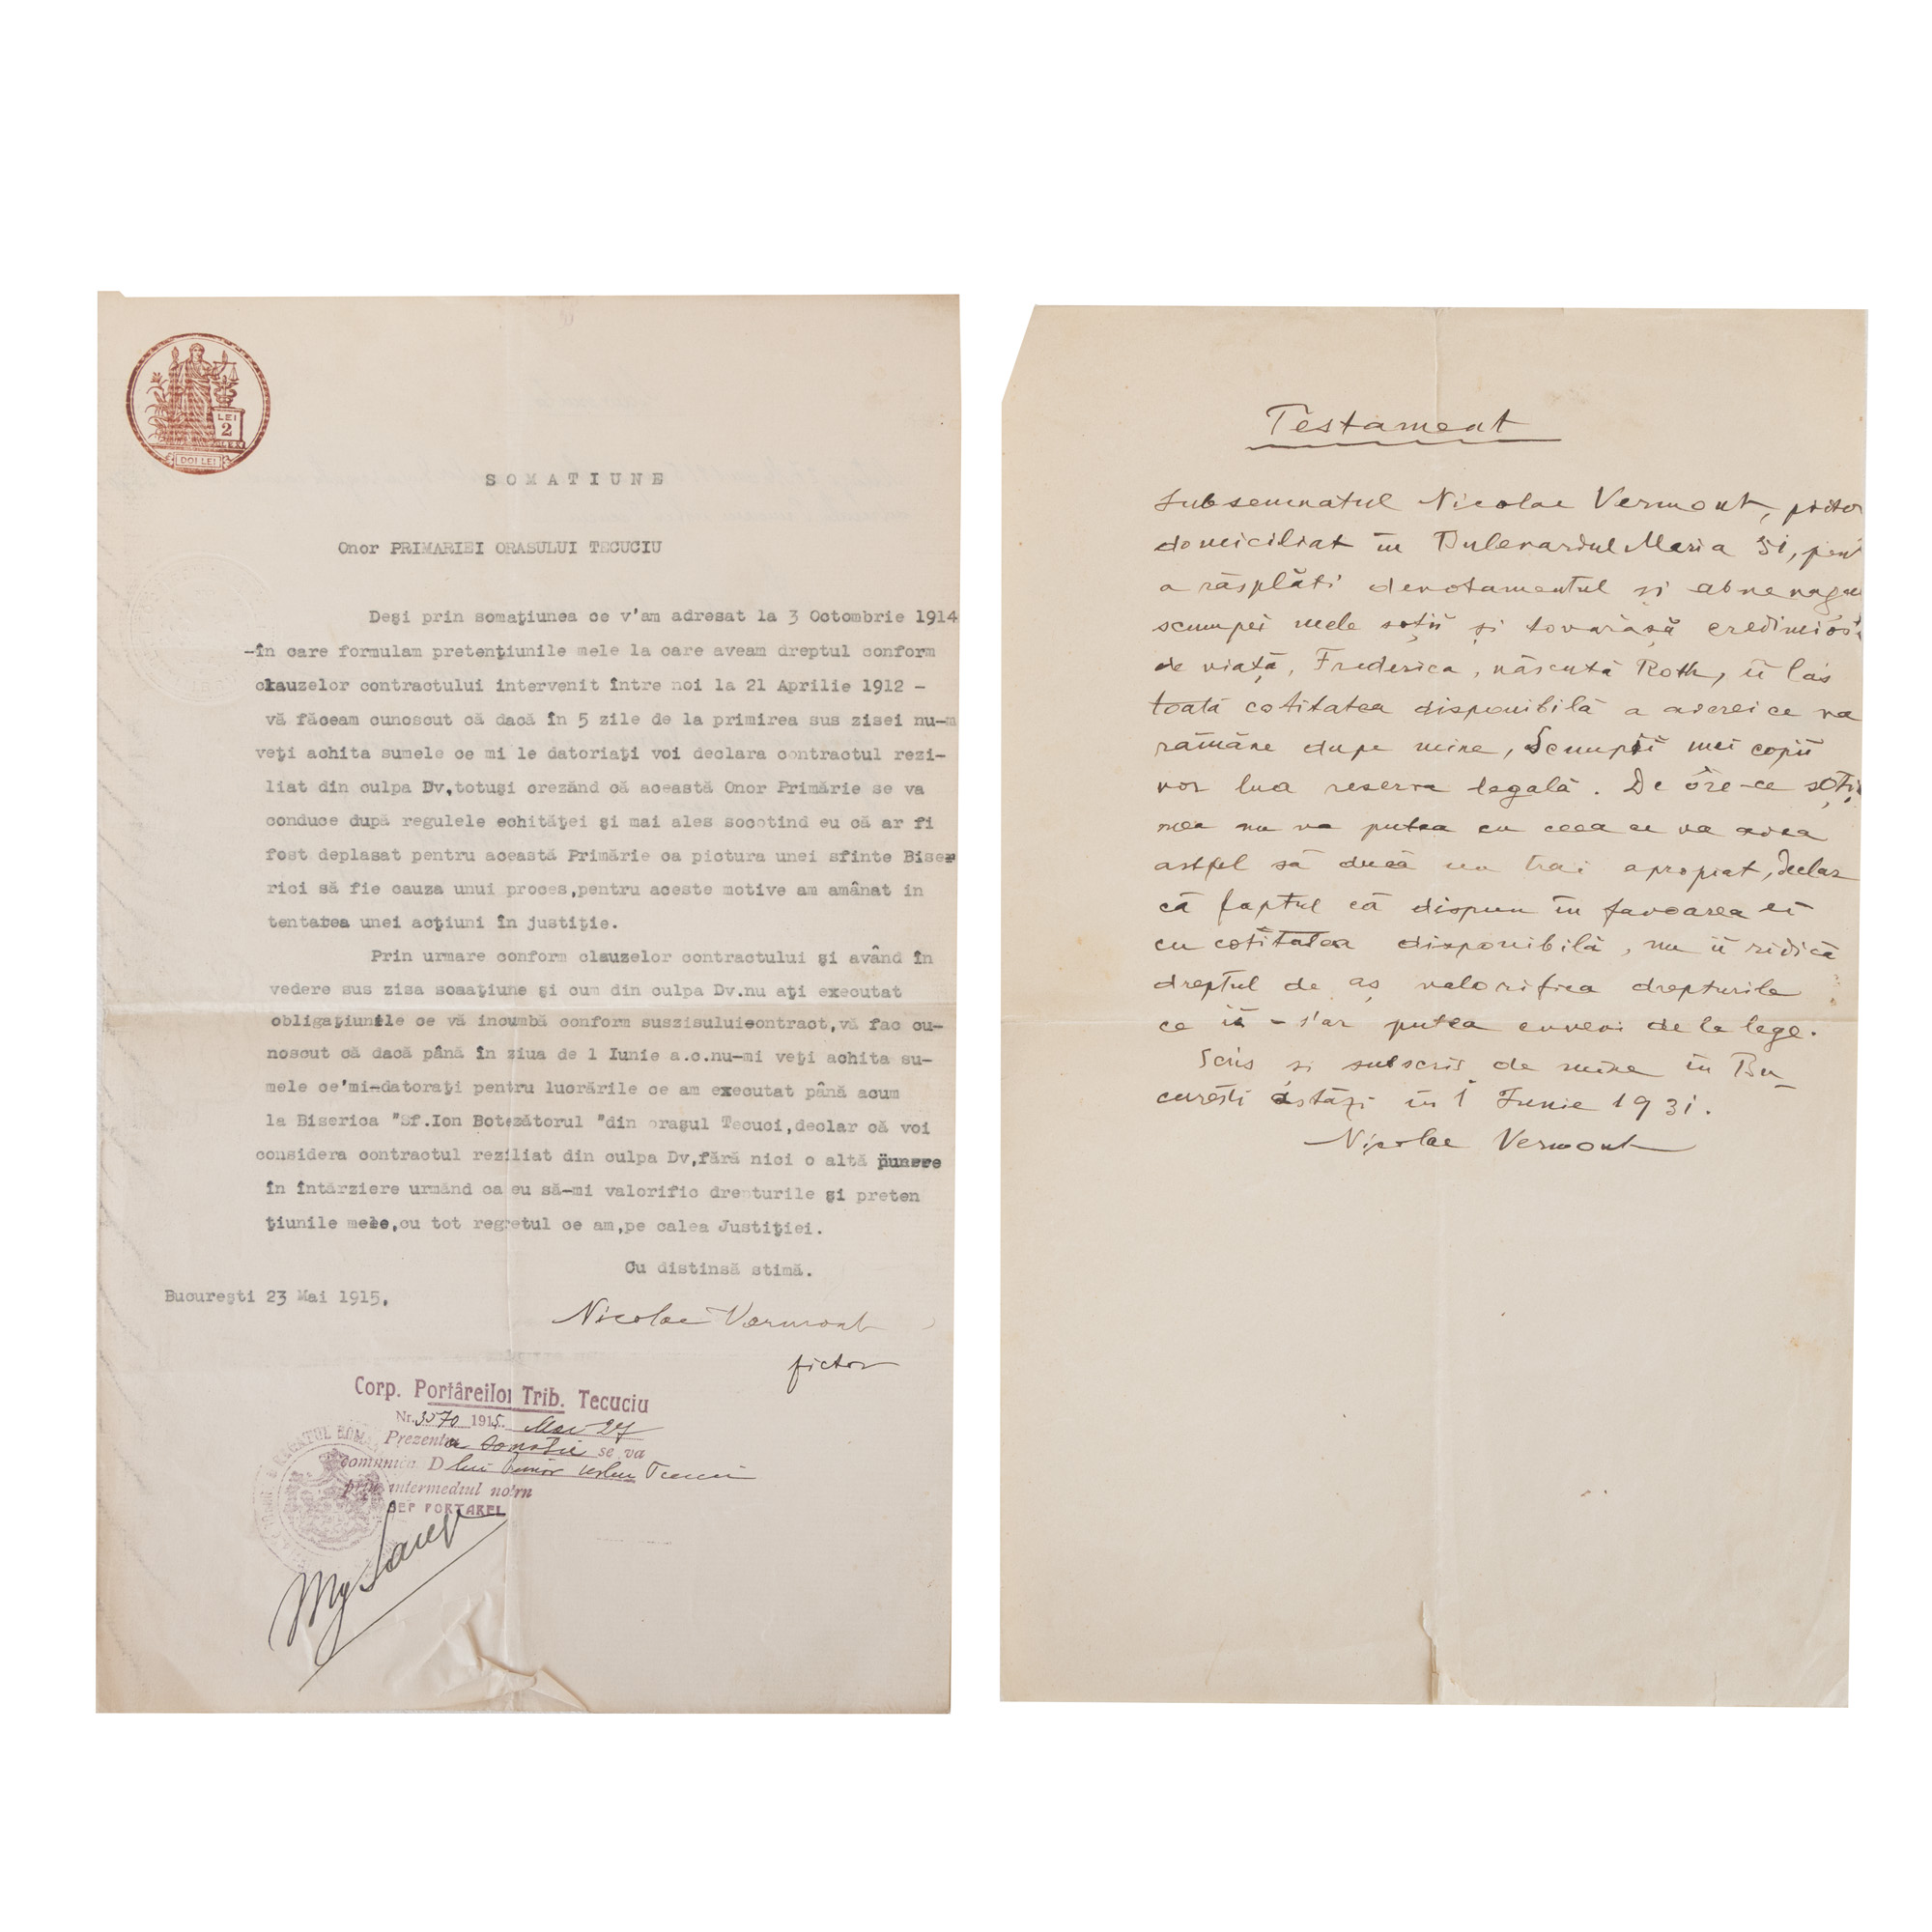 LEI
2
LEX
DOI LEI
SOMATIUNE
Onor PRIMARIEI ORASULUI TECUCIU
Deşi prin somaţiunea ce v'am adresat la 3 Octombrie 1914
-în care formulam pretenţiunile mele la care aveam dreptul conform
clauzelor contractului intervenit între noi la 21 Aprilie 1912 -
vă făceam cunoscut că dacă în 5 zile de la primirea sus zisei nu-m
veţi achita sumele ce mi le datoriaţi voi declara contractul rezi-
liat din culpa Dv,totuşi crezând că această Onor Primărie se va
conduce după regulele echităţei şi mai ales socotind eu că ar fi
fost deplasat pentru această Primărie ca pictura unei sfinte Bise
rici să fie cauza unui proces,pentru aceste motive am amânat in
tentarea unei acţiuni în justiţie.
Prin urmare conform clauzelor contractului şi având în
vedere sus zisa somaţiune şi cum din culpa Dv.nu aţi executat
obligaţiunile ce vă incumbă conform suszisuluicontract,vă fac cu-
noscut că dacă până în ziua de 1 Iunie a.c.nu-mi veţi achita su-
mele ce'mi-datoraţi pentru lucrările ce am executat până acum
la Biserica "Sf.Ion Botezătorul "din oraşul Tecuci,declar că voi
considera contractul reziliat din culpa Dv,fără nici o altă punere
în întârziere urmând ca eu să-mi valorific drepturile şi preten
ţiunile mele,cu tot regretul ce am,pe calea Justiţiei.
Cu distinsă stimă.
Bucureşti 23 Mai 1915.
Nicolae Vermont
pictor
Corp. Portăreilor Trib. Tecuciu
Nr. 3570 1915 Mai 27
Prezenta somaţie se va
comunica D lui Primar Tecuci
prin intermediul
SEF PORTAREL
Testament
Subsemnatul Nicolae Vermont, pictor
domiciliat în Bulevardul Maria 51, pent
a răsplăti devotamentul şi abnegaţiu
scumpei mele soţii şi tovarăşă credincioas
de viaţă, Frederica, născută Roth, îi las
toată cotitatea disponibilă a averei ce va
rămâne dupe mine, Scumpii mei copii
vor lua reserva legală. De óre-ce soţi
mea nu va putea cu ceea ce va avea
astfel să ducă un trai apropiat, declar
că faptul că dispun în favoarea ei
cu cotitatea disponibilă, nu îi ridică
dreptul de aş valorifica drepturile
ce i s'ar putea cuveni de la lege.
Scris şi subscris de mine în Bu_
cureşti astăzi în 1 Iunie 1931.
Nicolae Vermont